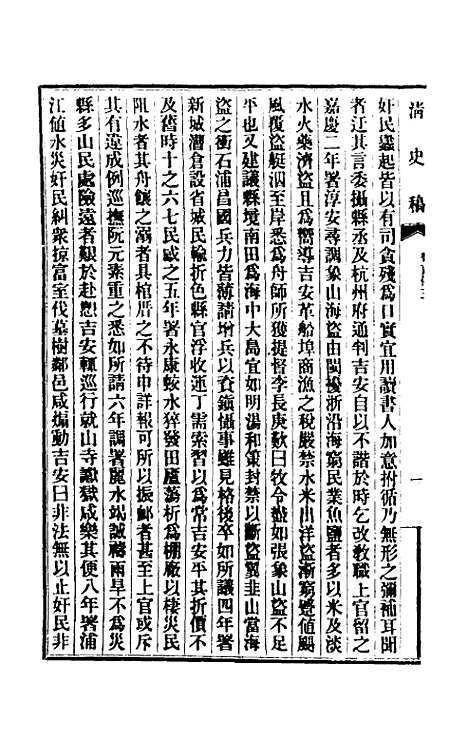 清史稿
一
奸民蠭起皆以有司貪殘爲口實宜用讀書人加意拊循乃無形之彌補耳聞
者迂其言委攝縣丞及杭州府通判吉安自以不諧於時乞改敎職上官留之
嘉慶二年署淳安尋調象山海盜由閩擾浙沿海窮民業魚鹽者多以米及淡
水火藥濟盜且爲嚮導吉安革船埠商漁之稅嚴禁水米出洋盜漸窮蹙値颶
風覆盜艇泅至岸悉爲舟師所獲提督李長庚歎曰牧令盡如張象山盜不足
平也又建議縣境南田爲海中大島宜如明湯和策封禁以斷盜翼韭山當海
盜之衝石浦昌國兵力皆薄請增兵以資鎭懾事雖見格後卒如所議四年署
新城漕倉設省城民輸折色縣官浮收運丁需索習以爲常吉安平其折價不
及舊時十之六七民感之五年署永康蛟水猝發田廬蕩析爲棚廠以棲災民
阻水者具舟餽之溺者具棺厝之不待申詳報可所以振卹者甚至上官或斥
其有違成例巡撫阮元素重之悉如所請六年調署麗水竭誠禱雨旱不爲災
縣多山民處險遠者艱於赴愬吉安輒巡行就山寺讞獄咸樂其便八年署浦
江値水災奸民糾衆掠富室伐墓樹鄰邑咸煽動吉安曰非法無以止奸民非